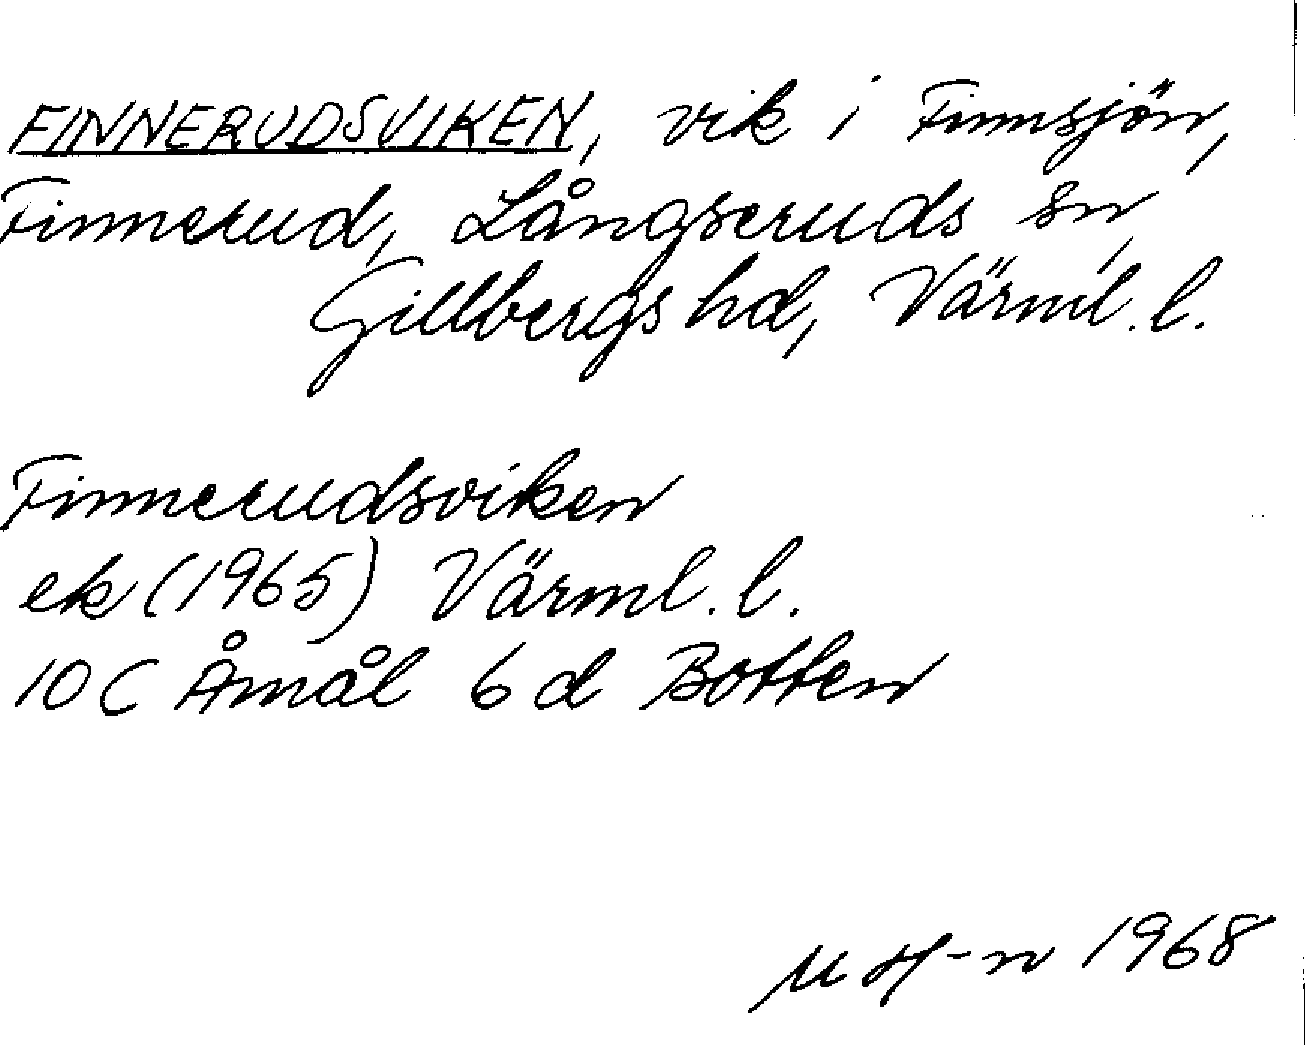 FINNERUDSVIKEN, vik i Finnsjön,
Finnerud, Långseruds sn,
Gillbergs hd, Värml. l.
Finnerudsviken
ek (1965) Värml. l.
10 C Åmål 6 d Botten
M H-n 1968